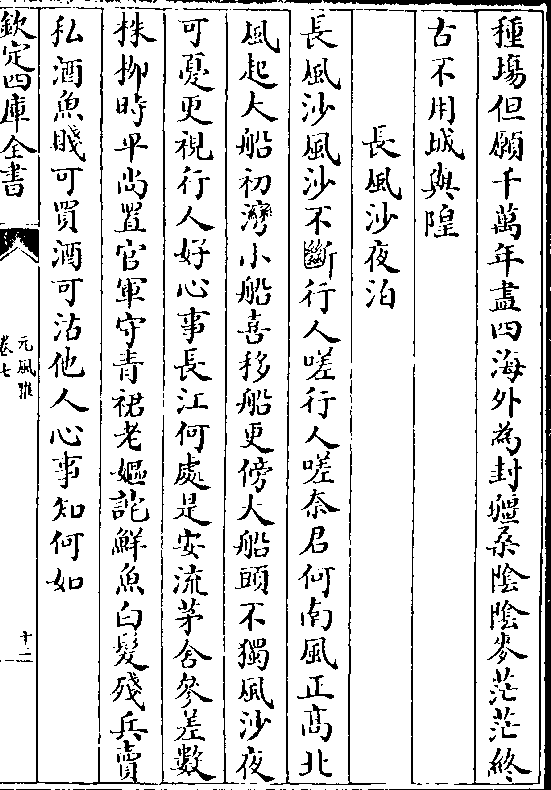 種塲但願千萬年盡四海外為封疆桑陰陰麥茫茫終
古不用城與隍
長風沙夜泊
長風沙風沙不斷行人嗟行人嗟奈君何南風正髙北
風起大船初灣小船喜移船更傍大船頭不獨風沙夜
可憂更視行人好心事長江何處是安流茅舍參差數
株柳時平尚置官軍守青裙老嫗詫鮮魚白髮殘兵賣
私酒魚賤可買酒可沽他人心事知何如
欽定四庫全書
元風雅
卷七
十二